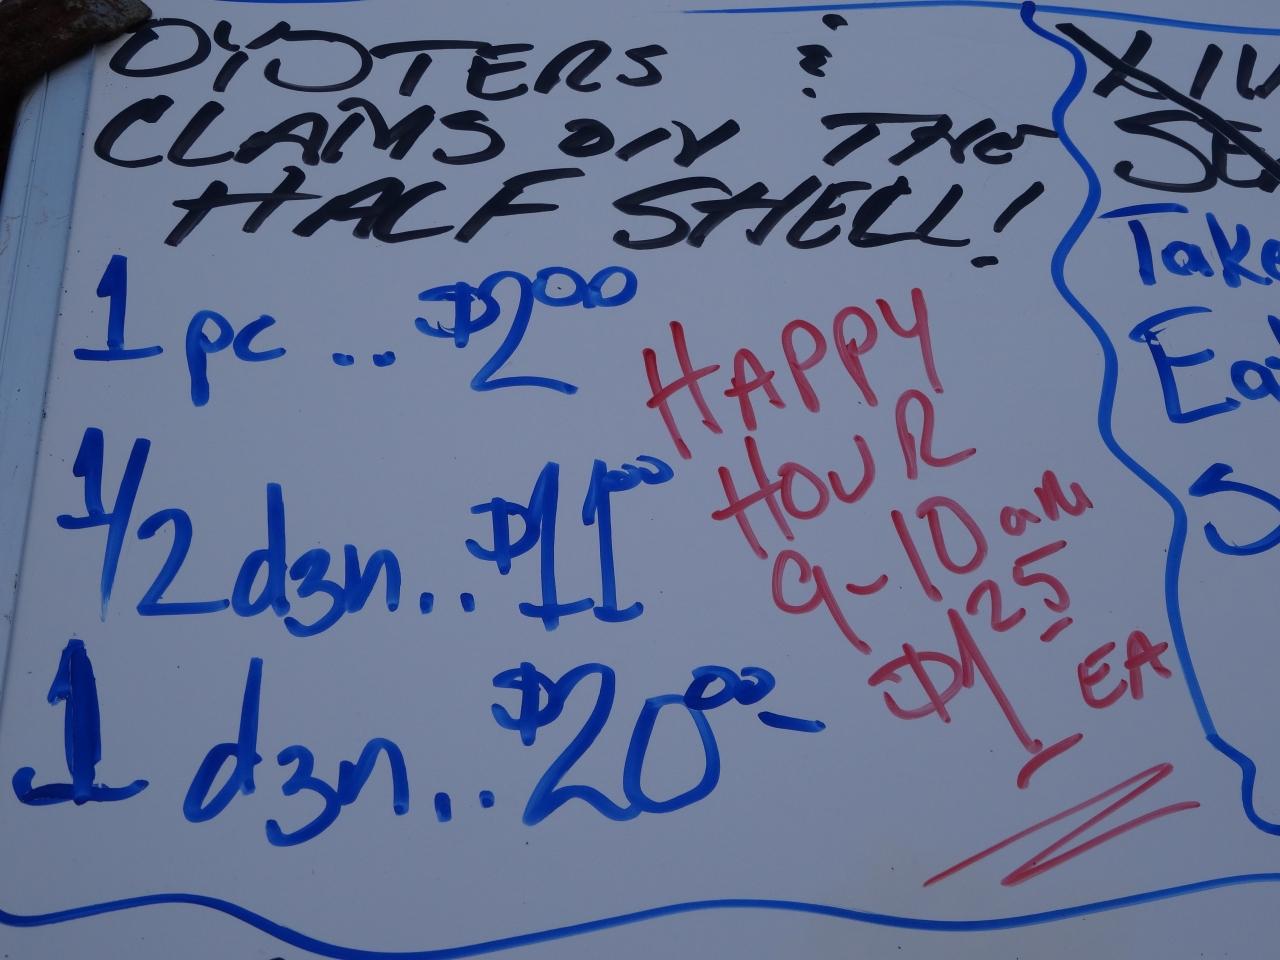 OYSTERS &
CLAMS ON THE
HALF SHELL!
1 pc .. $2.00
1/2 dzn.. $11.00
1 dzn.. $20.00
HAPPY
HOUR
9-10am
$1.25 EA
Take